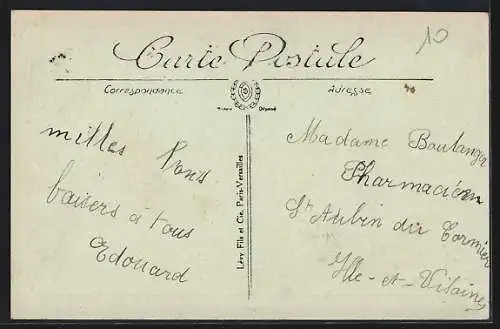 10
Carte Postale
Correspondance
Adresse
Marque Déposé
milles bons
baisers à tous
Edouard
Lévy, Fils et Cie, Paris-Versailles
Madame Boulanger
Pharmacien
St Aubin du Cormier
Ille-et-Vilaine